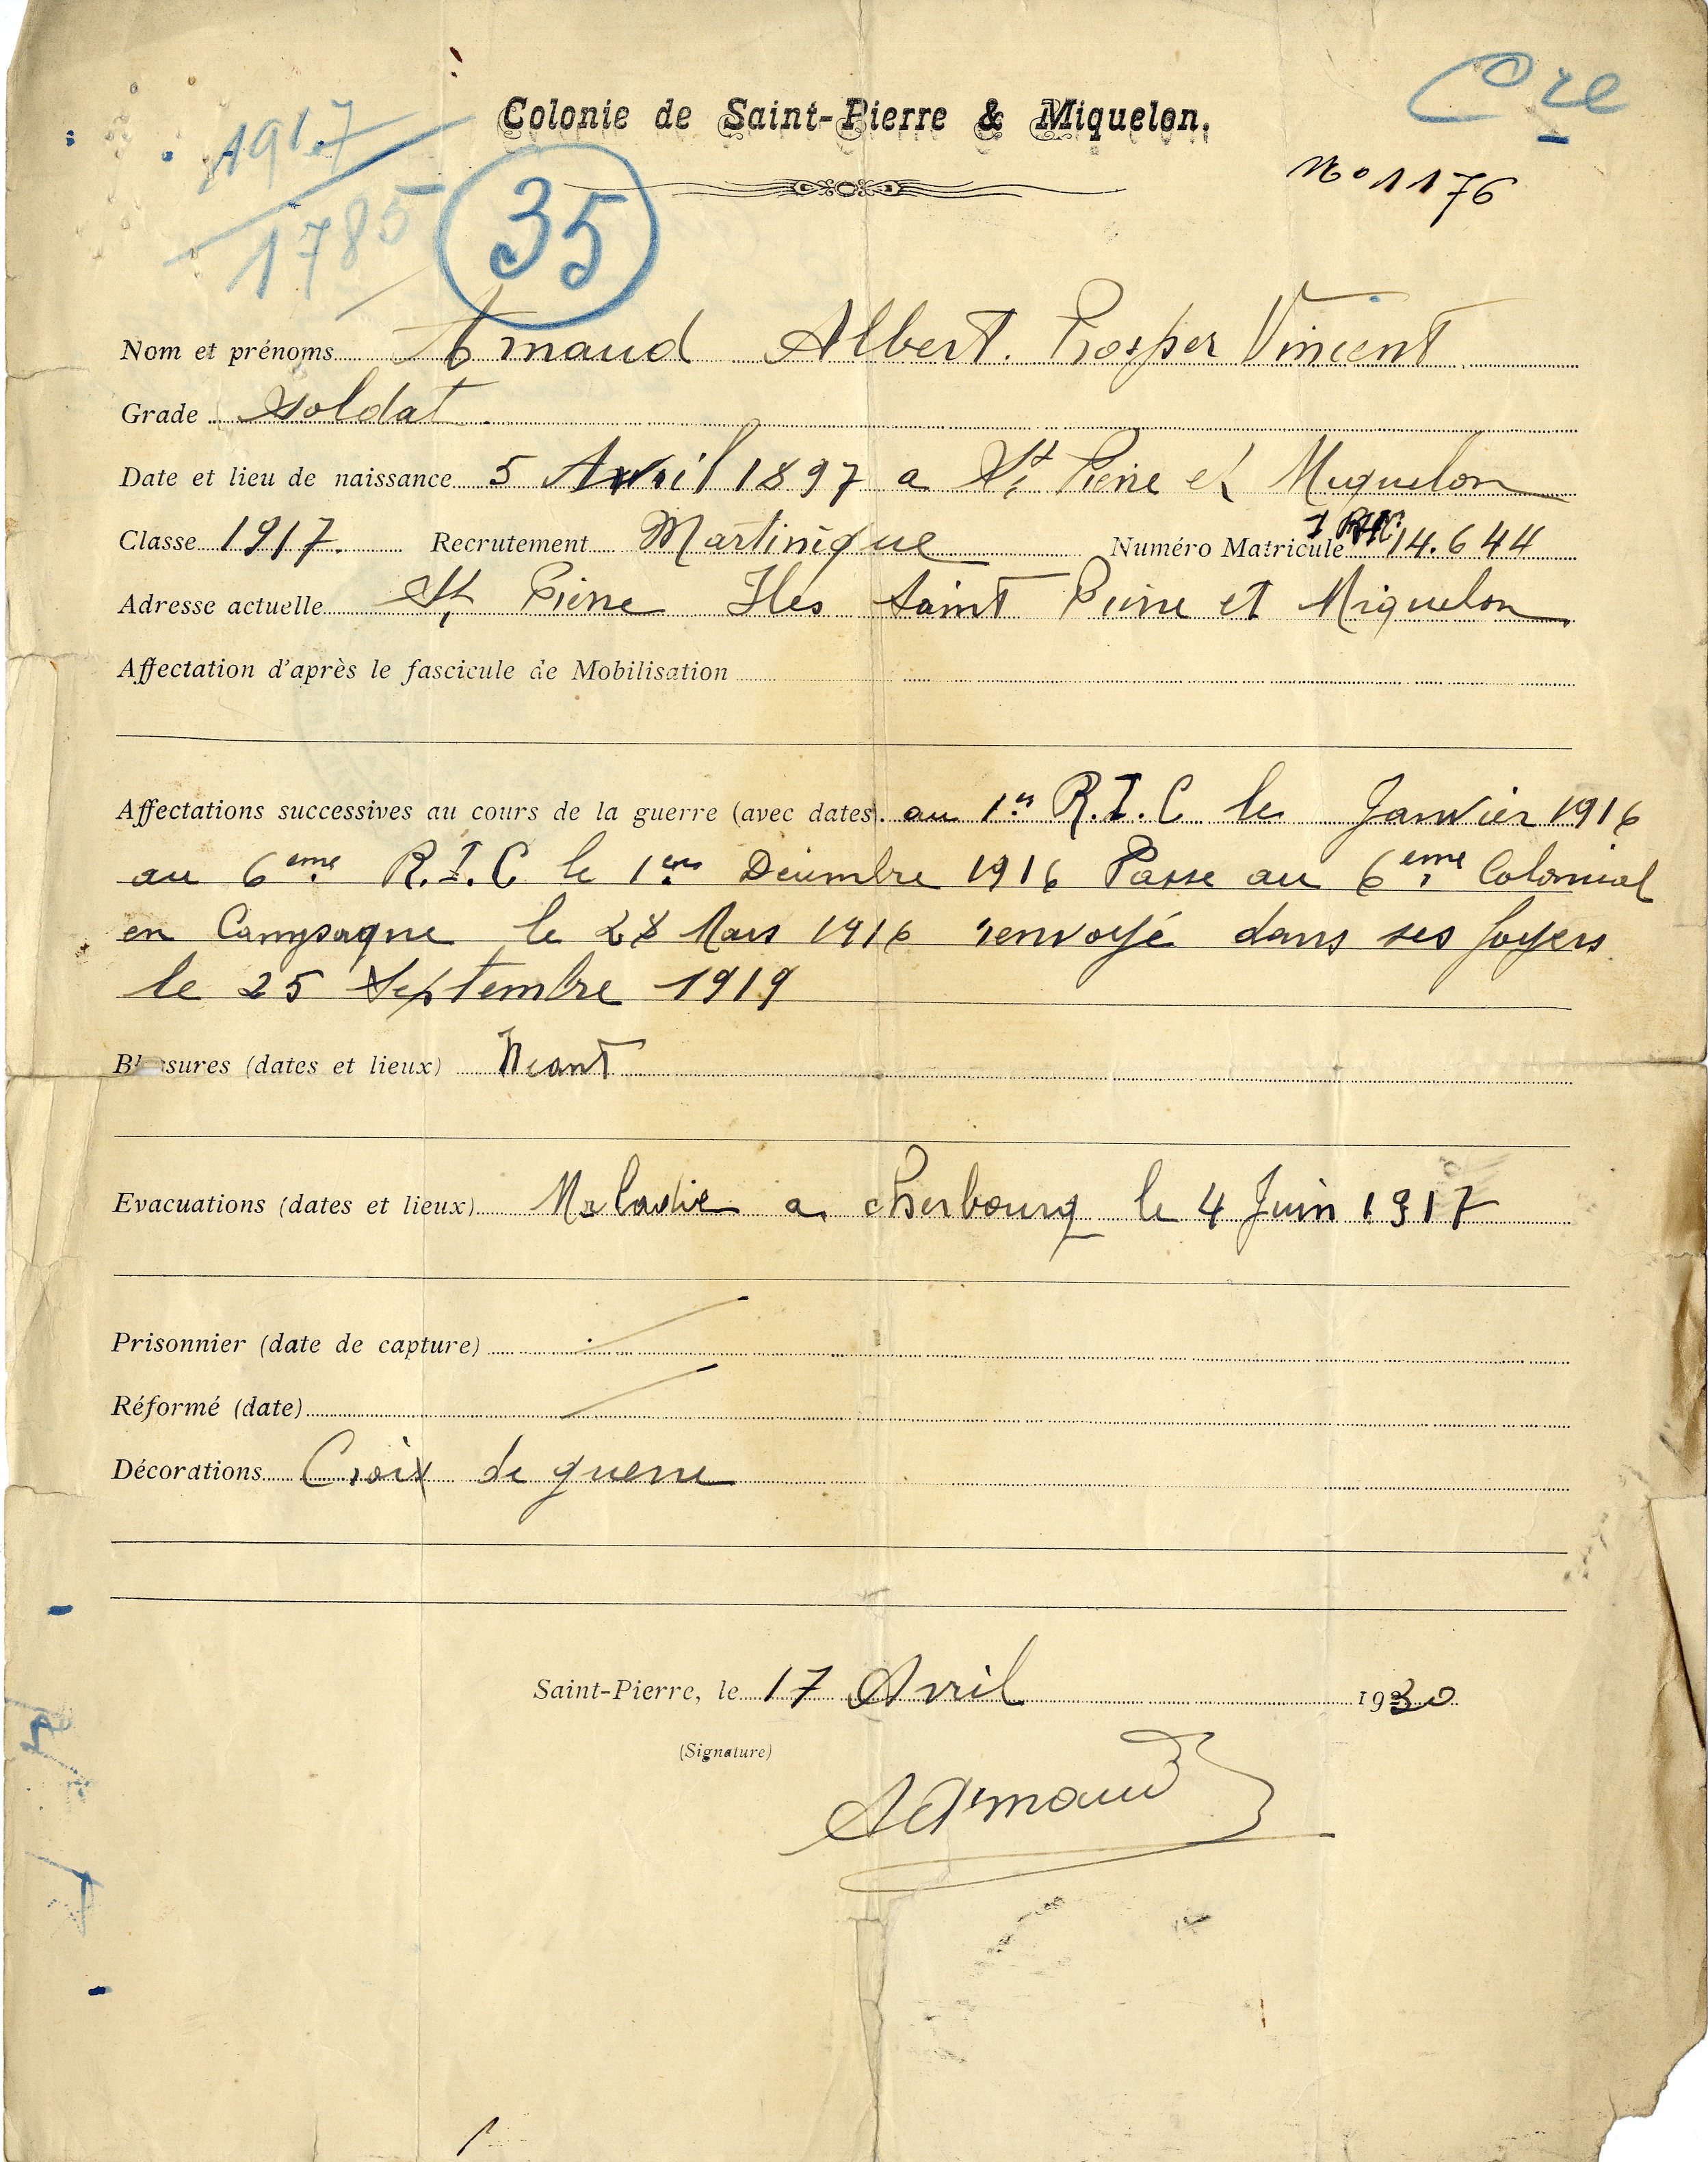 Colonie de Saint-Pierre & Miquelon.
Cre
1917
1785
35
No 1176
Nom et prénoms Armaud Albert. Prosper Vincent
Grade Soldat
Date et lieu de naissance 5 Avril 1897 a St Pierre et Miquelon
Classe 1917. Recrutement Martinique Numéro Matricule 14.644
Adresse actuelle St Pierre Iles Saint Pierre et Miquelon
Affectation d'après le fascicule de Mobilisation
Affectations successives au cours de la guerre (avec dates). au 1er R.I.C le Janvier 1916
au 6eme R.I.C le 1er Decembre 1916 Passe au 6eme Colonial
en Campagne le 28 Mars 1916 renvoyé dans ses foyers
le 25 Septembre 1919
Blessures (dates et lieux) Neant
Evacuations (dates et lieux) Maladie a cherbourg le 4 Juin 1917
Prisonnier (date de capture)
Réformé (date)
Décorations Croix de guerre
Saint-Pierre, le 17 Avril 1930
(Signature)
A Armaud